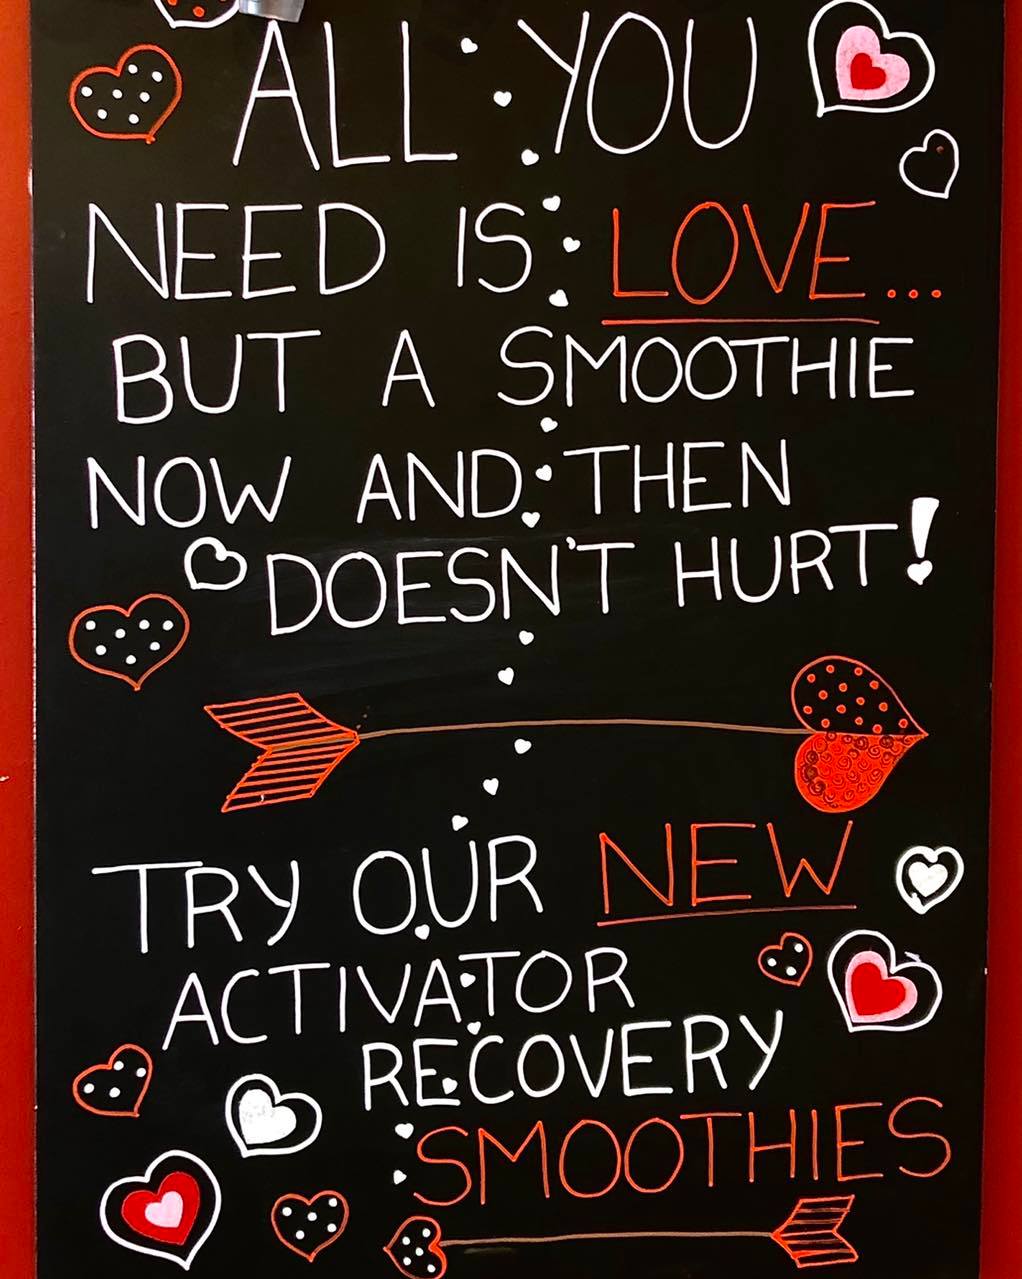 ALL YOU
NEED IS LOVE...
BUT A SMOOTHIE
NOW AND THEN
DOESN'T HURT!
TRY OUR NEW
ACTIVATOR
RECOVERY
SMOOTHIES